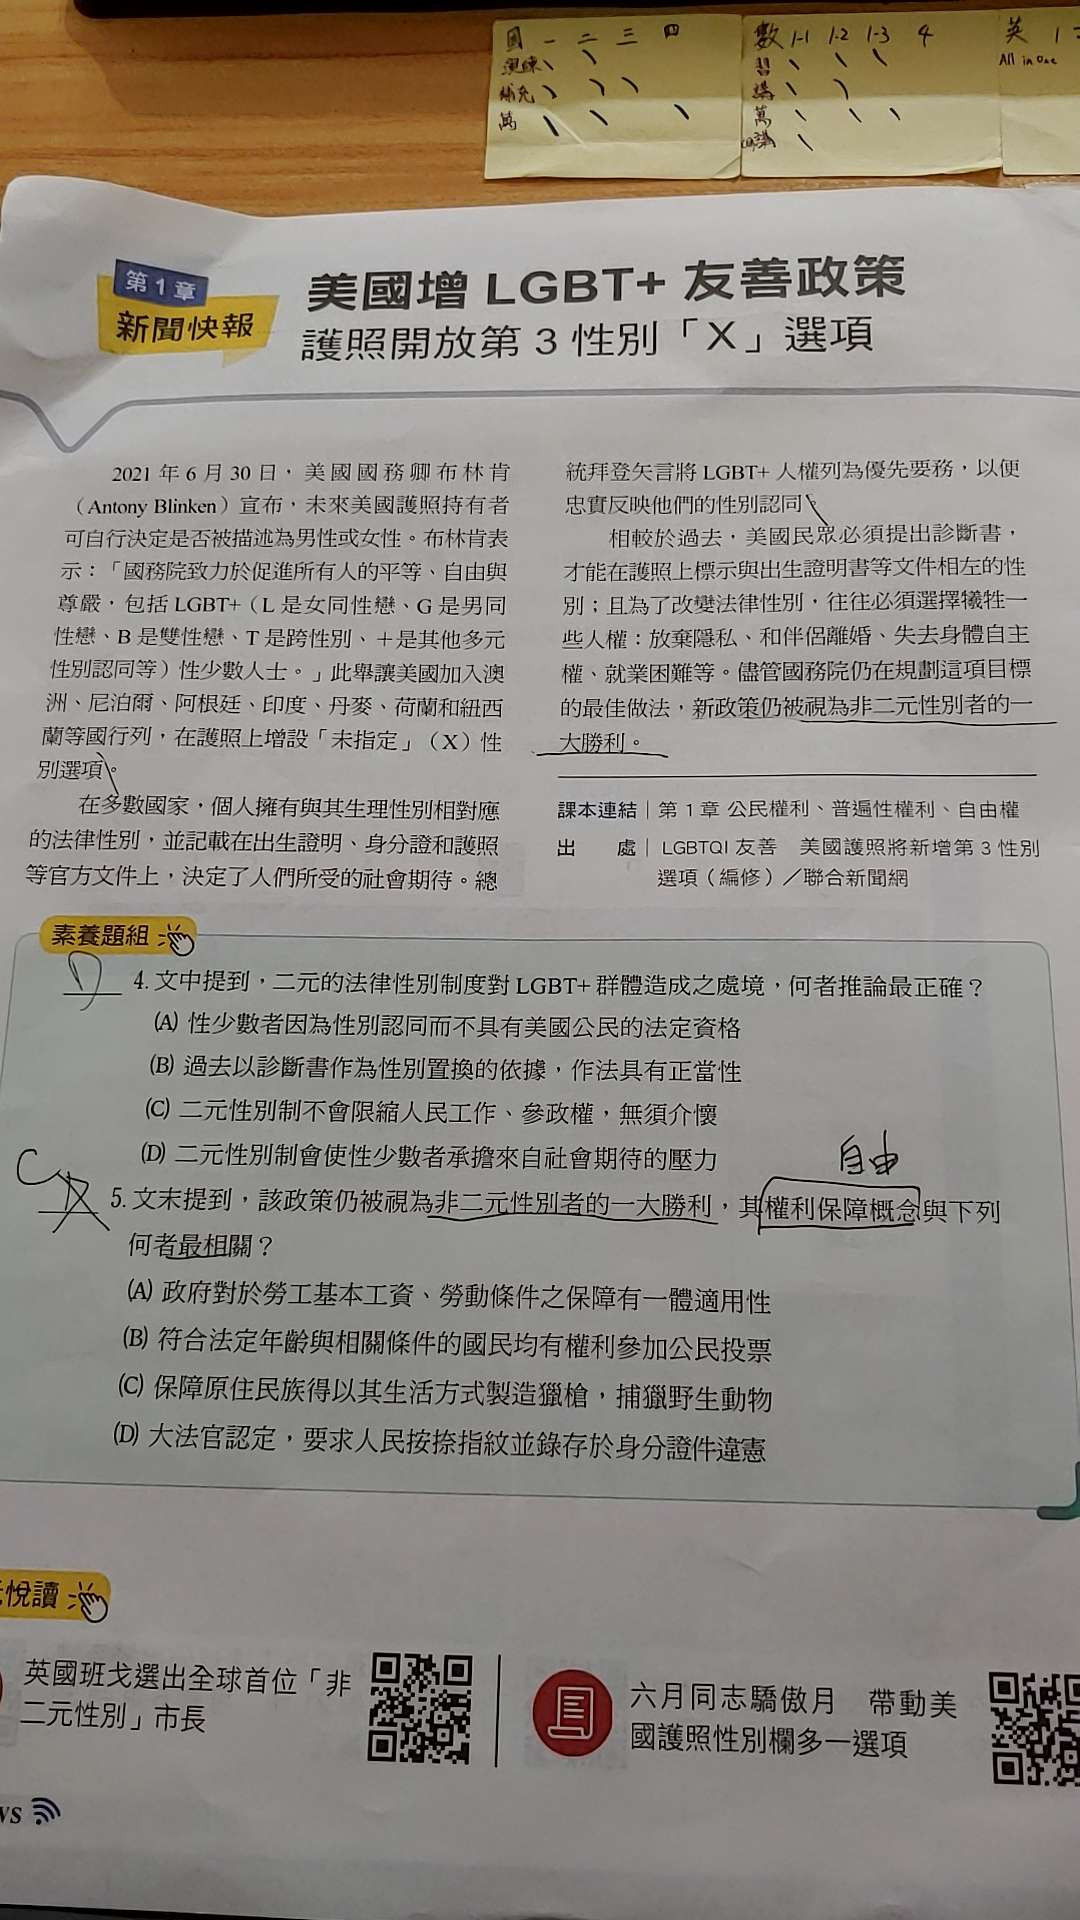 國 一 二 三 四
補充
萬
數 1-1 1-2 1-3 4
習
講
萬
講
英 1
All in One
第1章
新聞快報
美國增 LGBT+ 友善政策
護照開放第 3 性別「X」選項
2021 年 6 月 30 日，美國國務卿布林肯
（Antony Blinken）宣布，未來美國護照持有者
可自行決定是否被描述為男性或女性。布林肯表
示：「國務院致力於促進所有人的平等、自由與
尊嚴，包括 LGBT+（L 是女同性戀、G 是男同
性戀、B 是雙性戀、T 是跨性別、＋是其他多元
性別認同等）性少數人士。」此舉讓美國加入澳
洲、尼泊爾、阿根廷、印度、丹麥、荷蘭和紐西
蘭等國行列，在護照上增設「未指定」（X）性
別選項。
在多數國家，個人擁有與其生理性別相對應
的法律性別，並記載在出生證明、身分證和護照
等官方文件上，決定了人們所受的社會期待。總
統拜登矢言將 LGBT+ 人權列為優先要務，以便
忠實反映他們的性別認同。
相較於過去，美國民眾必須提出診斷書，
才能在護照上標示與出生證明書等文件相左的性
別；且為了改變法律性別，往往必須選擇犧牲一
些人權：放棄隱私、和伴侶離婚、失去身體自主
權、就業困難等。儘管國務院仍在規劃這項目標
的最佳做法，新政策仍被視為非二元性別者的一
大勝利。
課本連結｜第 1 章 公民權利、普遍性權利、自由權
出　　處｜LGBTQI 友善　美國護照將新增第 3 性別
選項（編修）／聯合新聞網
素養題組
D 4. 文中提到，二元的法律性別制度對 LGBT+ 群體造成之處境，何者推論最正確？
(A) 性少數者因為性別認同而不具有美國公民的法定資格
(B) 過去以診斷書作為性別置換的依據，作法具有正當性
(C) 二元性別制不會限縮人民工作、參政權，無須介懷
(D) 二元性別制會使性少數者承擔來自社會期待的壓力
自由
C 5. 文末提到，該政策仍被視為非二元性別者的一大勝利，其權利保障概念與下列
何者最相關？
(A) 政府對於勞工基本工資、勞動條件之保障有一體適用性
(B) 符合法定年齡與相關條件的國民均有權利參加公民投票
(C) 保障原住民族得以其生活方式製造獵槍，捕獵野生動物
(D) 大法官認定，要求人民按捺指紋並錄存於身分證件違憲
悅讀
英國班戈選出全球首位「非
二元性別」市長
六月同志驕傲月　帶動美
國護照性別欄多一選項
WS